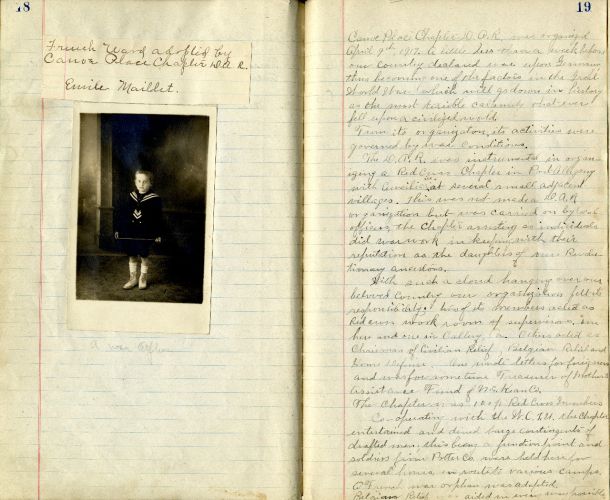 18
French Ward adopted by
Canoe Place Chapter D.A.R.
Emile Maillet.
A war
19
Canoe Place Chapter D.A.R. was organized
April 9th, 1917. A little less than a week before
our Country declared war upon Germany
thus becoming one of the factors in the Great
World War which will go down in history
as the most terrible calamity that ever
fell upon a civilized world.
From its organization, its activities were
governed by war conditions.
The D.A.R. was instrumental in organ-
izing a Red Cross Chapter in Port Allegany
with Auxiliaries at several small adjacent
villages. This was not made a D.A.R.
organization but was carried on by local
officers, the Chapter assisting as individuals
did war work in keeping with their
reputation as the daughters of Revolu-
tionary ancestors.
With such a cloud hanging over our
beloved Country our organization felt its
responsibility. Two of its members acted as
Red Cross work room supervisors, one
here and one in Gallery, Pa. Others acted as
Chairman of Civilian Relief, Belgian Relief and
Home Defense. One wrote letters for foreigners
and was for sometime Treasurer of Mother's
Assistance Fund of McKean Co.
The Chapter was 100% Red Cross members
Co-operating with the W.C.T.U. the Chapter
entertained and dined large contingents of
drafted men, this being a junction point and
soldiers from Potter Co. were held here for
several hours in route to various camps.
A French war orphan was adopted.
Belgian Relief was aided in